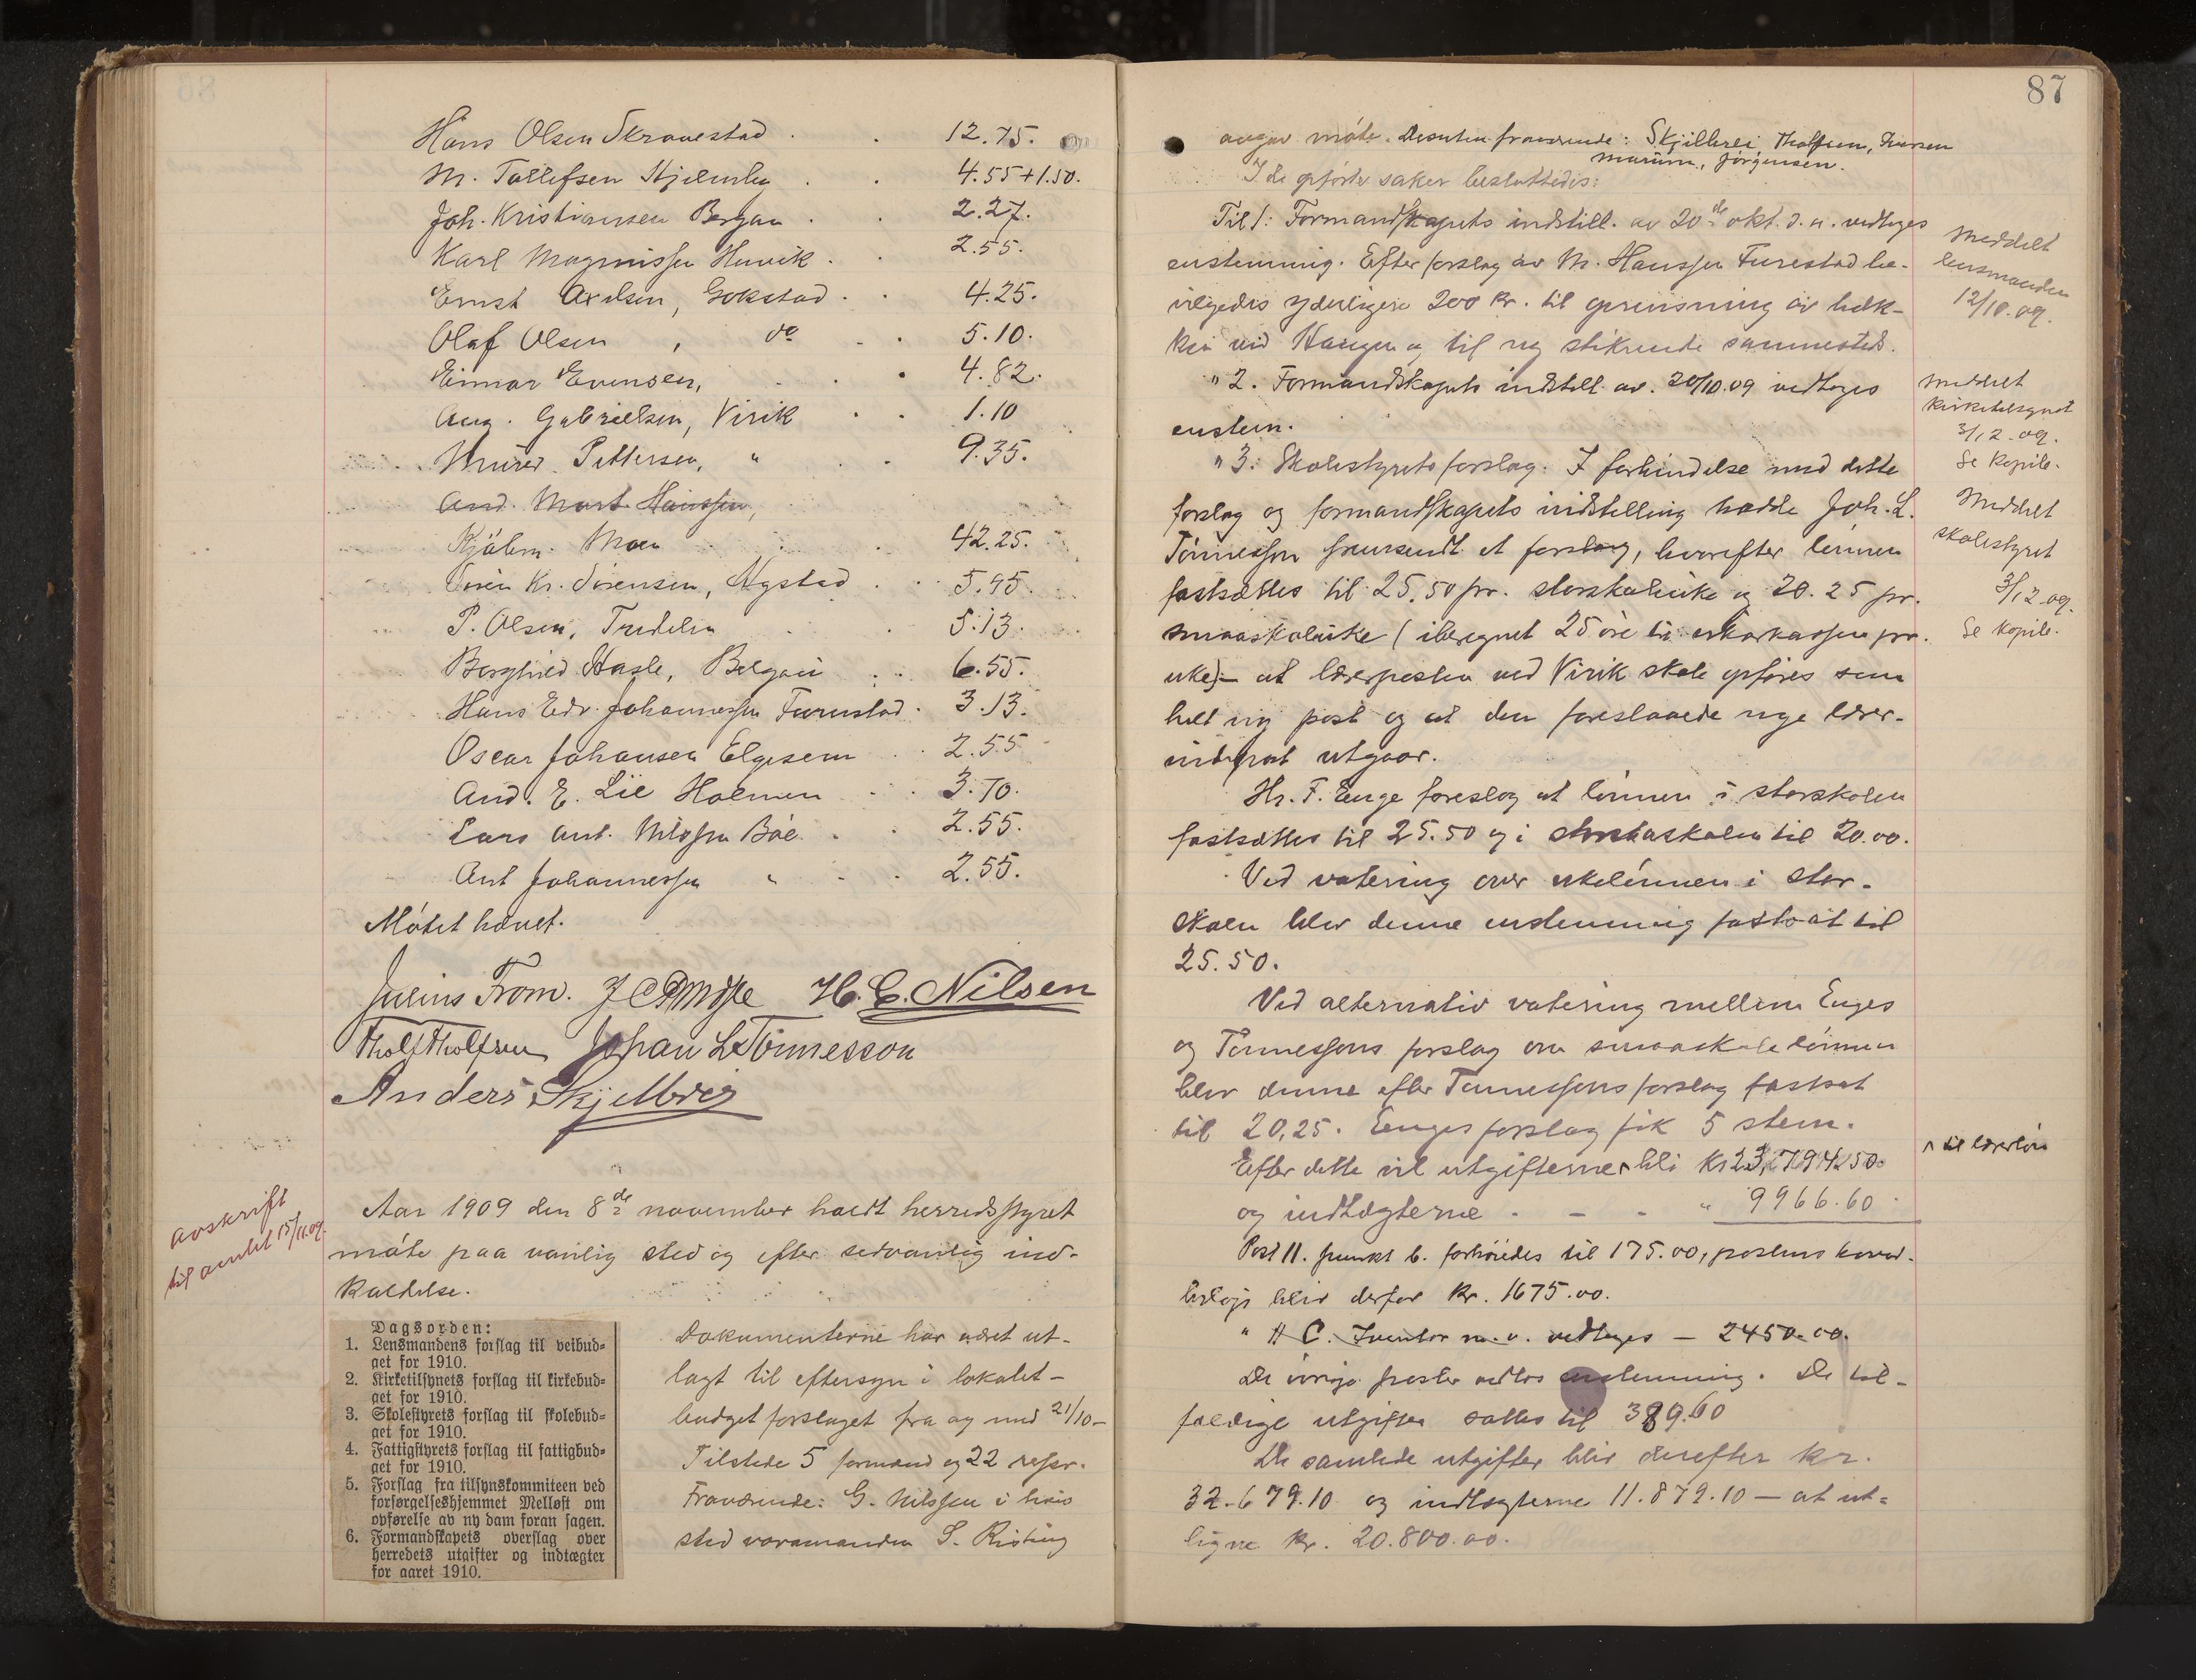 Hans Olsen Skravestad . . 12.75.
M. Tollefsen Hjelmby . . 4.55+1.50.
Joh. Kristiansen Bergan . . 2.27.
Karl Magnussen Huvik . . 2.55.
Ernst Axelsen, Gokstad . . 4.25.
Olaf Olsen , do . . 5.10.
Einnar Evensen, . . 4.82.
Aug. Gabrielsen, Virik . . 1.10
Murer Pettersen, " . . 9.35.
And. Mart. Hanssen,
Hjalm. Moen . 42.25.
Sören Kr. Sörensen, Nygstad . . 5.95.
P. Olsen, . . 5.13.
Hasle, Bergan . . 6.55.
Hans Edv. Johannessen Furustad . 3.13.
Oscar Johansen Elgesem . 2.55
And. E. Lie Holmen . . 3.70.
Lars Ant. Nilssen Böe . . 2.55.
Ant Johannessen " . . 2.55.
Mötet hævet.
Julius From. H. C. Nilsen
Tholf Tholfsen Johan L Tönnesson
Anders Skjelbrei
avskrift
til amtet 15/11.09.
Aar 1909 den 8de november holdt herredsstyret
möte paa vanlig sted og efter sedvanlig ind-
kaldelse.
Dagsorden:
1. Lensmandens forslag til veibud=
get for 1910.
2. Kirketilsynets forslag til kirkebud=
get for 1910.
3. Skolestyrets forslag til skolebud=
get for 1910.
4. Fattigstyrets forslag til fattigbud=
get for 1910.
5. Forslag fra tilsynskommiteen ved
forsørgelseshjemmet Melløst om
opførelse av ny dam foran sagen.
6. Formandskapets overslag over
herredets utgifter og indtægter
for aaret 1910.
Dokumenterne har været ut-
lagt til eftersyn i lokalet -
budgetforslaget fra og med 21/10-
Tilstede 5 formænd og 22 repr.
Fraværende: G. Nilssen i hvis
sted varamanden S. Risting
87
avgav möte. Desuten fraværende: Skjelbrei, Tholfsen, Iversen
Marum, Jörgensen.
I de opförte saker besluttedes:
Til 1: Formandskapets indstill. av 20de okt. d. a. vedtoges
enstemmig. Efter forslag av M. Hanssen Furestad be-
vilgedes yderligere 200 kr. til oprensning av bæk-
ken ved Haugen og til ny stikrende sammesteds.
Meddelt
lensmanden
12/10.09.
" 2. Formandskapets indstill. av. 20/10.09 vedtoges
enstem.
Meddelt
kirketilsynet
3/12.09.
Se kopib.
" 3. Skolestyrets forslag. I forbindelse med dette
forslag og formandskapets indstilling hadde Joh. L.
Tönnesson fremsendt et forslag, hvorefter lönnen
fastsættes til 25.50 pr. storskoleuke og 20.25 pr.
smaaskoleuke (iberegnet 25 öre til pr.
uke) – at lærerposten ved Virik skole opföres som
helt ny post og at den foreslaaede nye lærer-
indepost utgaar.
Meddelt
skolestyret
3/12.09.
Se kopib.
Hr. F. Enge foreslog at lönnen i storskolen
fastsættes til 25.50 og i til 20.00.
Ved votering over ukelönnen i stor-
skolen blev denne enstemmig fastsat til
25.50.
Ved alternativ votering mellem Enges
og Tönnessons forslag om smaaskolelönnen
blev denne efter Tönnessons forslag fastsat
til 20,25. Enges forslag fik 5 stem.
Efter dette vil utgifterne ^ bli Kr 23,794.50.
^ til lærerlön
og indtægterne . - - " 9966.60
Post 11. punkt b. forhöiedes til 175.00, postens hoved-
belöp blir derfor kr. 1675.00.
" H C. Inventar m. v. vedtoges — 2450.00.
De övrige poster vedtos enstemmig. De til-
fældige utgifter sattes til 389.60
De samlede utgifter blir derefter kr.
32.679.10 og indtægterne 11.879.10 — at ut=
ligne kr. 20.800.00.